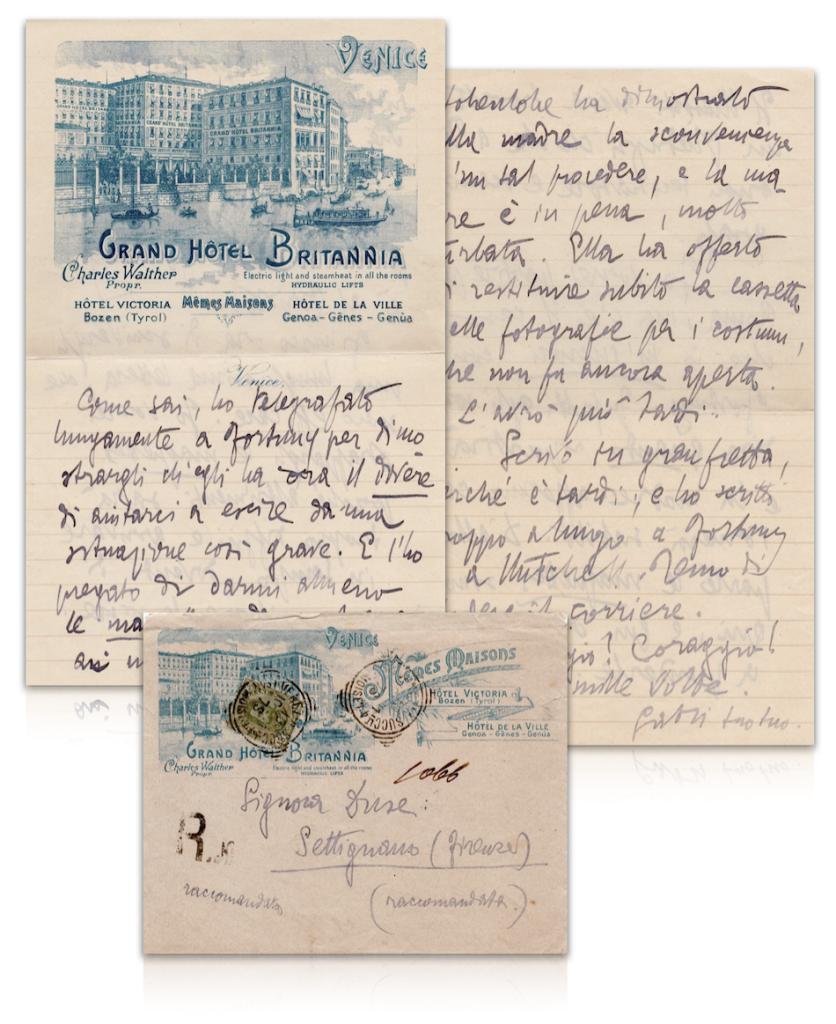 VENICE
GRAND HÔTEL BRITANNIA
GRAND HÔTEL BRITANNIA
Charles Walther
Propr.
Electric light and steamheat in all the rooms
HYDRAULIC LIFTS
HÔTEL VICTORIA
Bozen (Tyrol)
Mêmes Maisons
HÔTEL DE LA VILLE
Genoa - Gênes - Genüa
Venice,
Come sai, ho telegrafato
lungamente a Fortuny per dimo
strargli ch'egli ha ora il dovere
di aiutarci a escire da una
situazione così grave. E l'ho
pregato di darmi almeno
le ma
ha dimostrato
lla madre la sconvenienza
un tal procedere, e la ma
re è in pena, molto
turbata. Ella ha offerto
i restituire subito la cassetta
elle fotografie per i costumi,
he non fu ancora aperta.
L'avrò più tardi.
Scrivo in gran fretta,
rché è tardi; e ho scritto
roppo a lungo a Fortuny
a Mitchell. Temo di
il corriere.
! Coraggio!
mille volte.
VENICE
GRAND HÔTEL BRITANNIA
Charles Walther
Propr.
Electric light and steamheat in all the rooms
HYDRAULIC LIFTS
Mêmes Maisons
HÔTEL VICTORIA
Bozen (Tyrol)
HÔTEL DE LA VILLE
Genoa - Gênes - Genüa
1066
Signora Duse:
Settignano (Firenze)
R.
raccomandata
(raccomandata.)